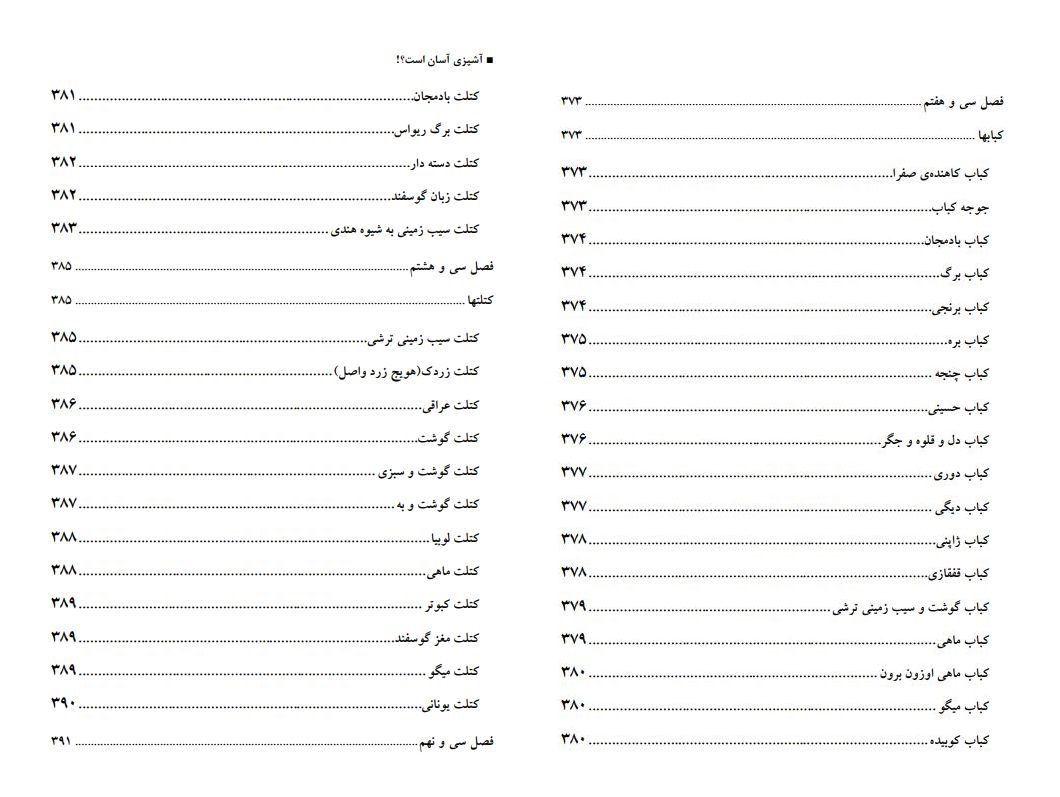 فصل سی و هفتم ........ ۳۷۳
کبابها ........ ۳۷۳
کباب کاهنده‌ی صفرا ........ ۳۷۳
جوجه کباب ........ ۳۷۳
کباب بادمجان ........ ۳۷۴
کباب برگ ........ ۳۷۴
کباب برنجی ........ ۳۷۴
کباب بره ........ ۳۷۵
کباب چنجه ........ ۳۷۵
کباب حسینی ........ ۳۷۶
کباب دل و قلوه و جگر ........ ۳۷۶
کباب دوری ........ ۳۷۷
کباب دیگی ........ ۳۷۷
کباب ژاپنی ........ ۳۷۸
کباب قفقازی ........ ۳۷۸
کباب گوشت و سیب زمینی ترشی ........ ۳۷۹
کباب ماهی ........ ۳۷۹
کباب ماهی اوزون برون ........ ۳۸۰
کباب میگو ........ ۳۸۰
کباب کوبیده ........ ۳۸۰
■ آشپزی آسان است؟!
کتلت بادمجان ........ ۳۸۱
کتلت برگ ریواس ........ ۳۸۱
کتلت دسته دار ........ ۳۸۲
کتلت زبان گوسفند ........ ۳۸۲
کتلت سیب زمینی به شیوه هندی ........ ۳۸۳
فصل سی و هشتم ........ ۳۸۵
کتلتها ........ ۳۸۵
کتلت سیب زمینی ترشی ........ ۳۸۵
کتلت زردک(هویج زرد واصل) ........ ۳۸۵
کتلت عراقی ........ ۳۸۶
کتلت گوشت ........ ۳۸۶
کتلت گوشت و سبزی ........ ۳۸۷
کتلت گوشت و به ........ ۳۸۷
کتلت لوبیا ........ ۳۸۸
کتلت ماهی ........ ۳۸۸
کتلت کبوتر ........ ۳۸۹
کتلت مغز گوسفند ........ ۳۸۹
کتلت میگو ........ ۳۸۹
کتلت یونانی ........ ۳۹۰
فصل سی و نهم ........ ۳۹۱